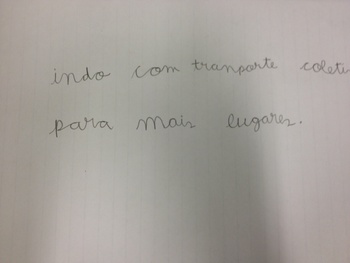 indo com tranporte coleti
para mais lugares.